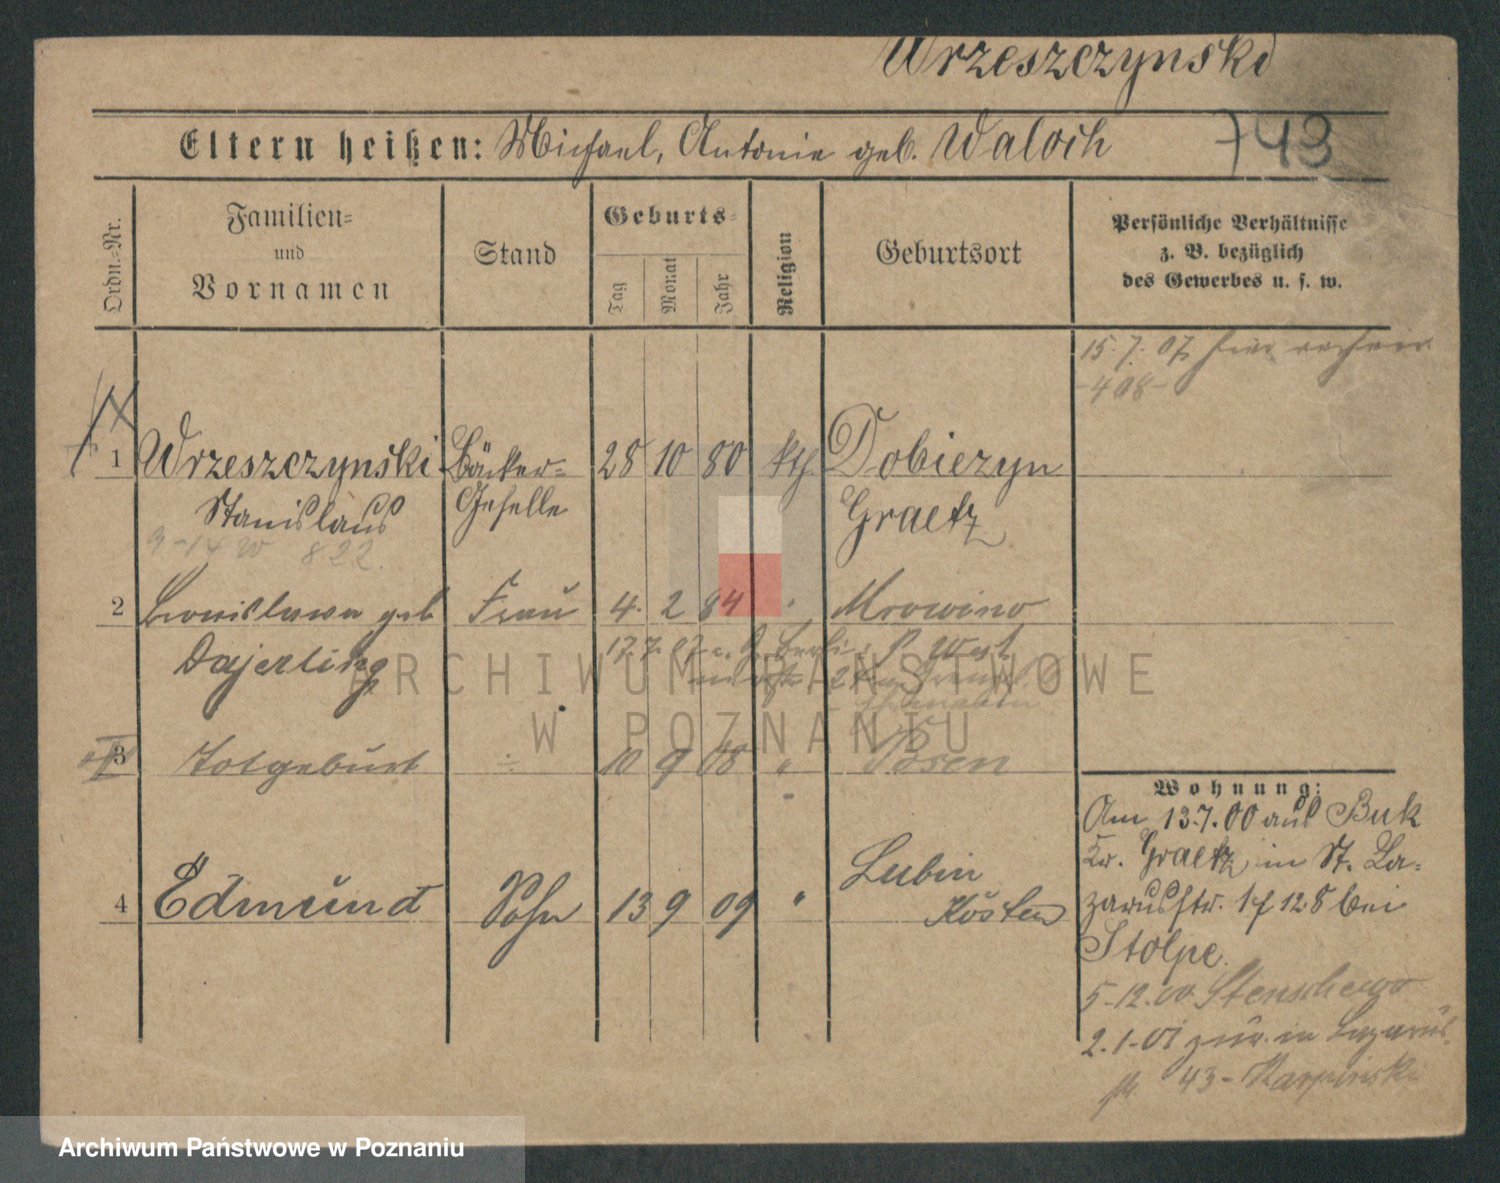 Wrzeszczynski
Eltern heißen: Michael, Antonie geb. Waloch 743
Ordn.-Nr.
Familien-
und
Vornamen
Stand
Geburts-
Tag
Monat
Jahr
Religion
Geburtsort
Persönliche Verhältnisse
z. B. bezüglich
des Gewerbes u. s. w.
15.7.07
-408-
1 Wrzeszczynski Bäcker- 28 10 80 kth. Dobiezyn
Stanislaus Geselle Graetz
9-14 W 822
2 Bronislawa geb Frau 4. 2 84 " Mrowino
Dajerling
17.7.07
3 Totgeburt ÷ 10 9 08 " Posen
4 Edmund Sohn 13 9 09 " Lubin
Kosten
Wohnung:
Am 13.7.00 aus Buk
Kr. Graetz in St. La-
zarusstr. 17 128 bei
Stolpe.
5-12.00
2.1-01 zur. in Lazarus
43-
ARCHIWUM PAŃSTWOWE
W POZNANIU
Archiwum Państwowe w Poznaniu